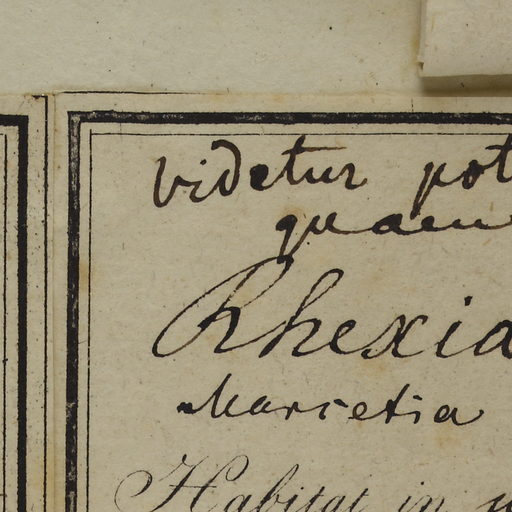 videtur pot
quaen
Rhexia
Marcetia
Habitat in